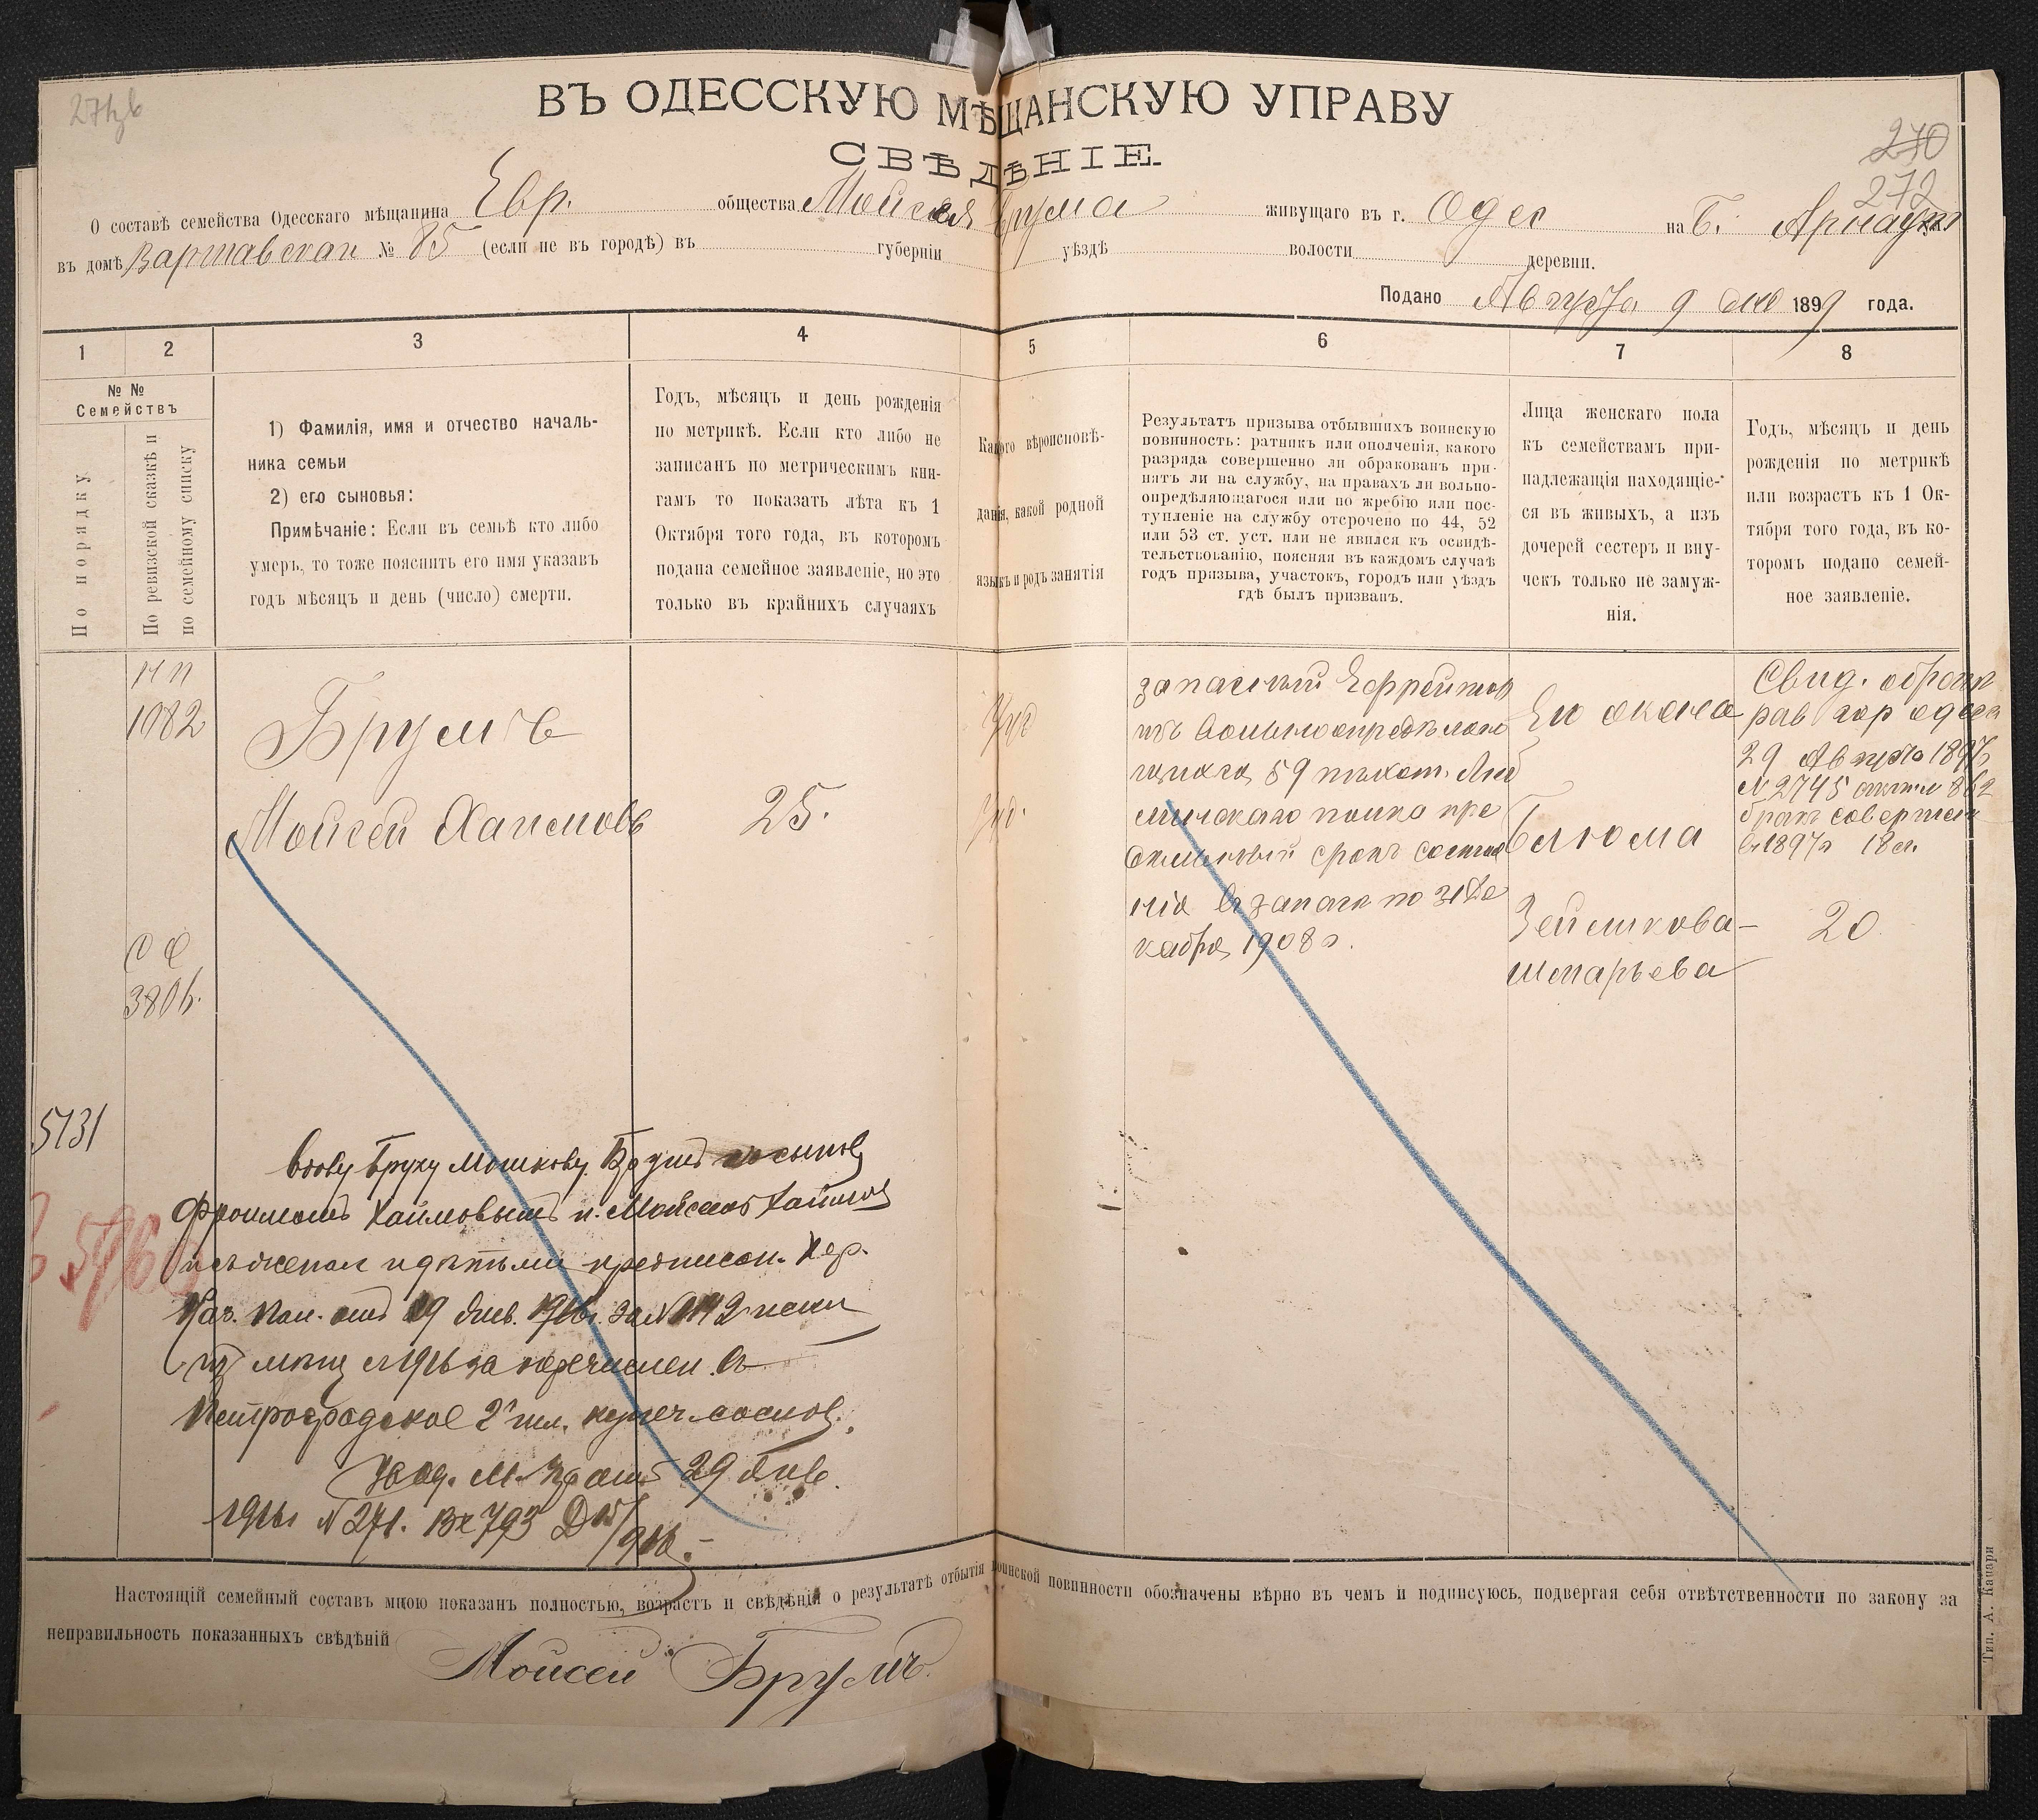 ВЪ ОДЕССКУЮ МѢЩАНСКУЮ УПРАВУ
СВѢДѢНІЕ.
270
272
О составѣ семейства Одесскаго мѣщанина Евр. общества Мойсея Брума живущаго въ г. Одес на Б. Арнаут
въ домѣ Варшавская № 85 (если не въ городѣ) въ губерніи уѣздѣ волости деревни.
Подано Августа 9 дня 1899 года.
1 2 3 4 5 6 7 8
№ №
Семействъ
По порядку
По ревизской сказкѣ и
по семейному списку
1) Фамилія, имя и отчество началь-
ника семьи
2) его сыновья:
Примѣчаніе: Если въ семьѣ кто либо
умеръ, то тоже пояснить его имя указавъ
годъ мѣсяцъ и день (число) смерти.
Годъ, мѣсяцъ и день рожденія
по метрикѣ. Если кто либо не
записанъ по метрическимъ кни-
гамъ то показать лѣта къ 1
Октября того года, въ которомъ
подана семейное заявленіе, но это
только въ крайнихъ случаяхъ
Какого вѣроисповѣ-
данія, какой родной
языкъ и родъ занятія
Результатъ призыва отбывшихъ воинскую
повинность: ратникъ или ополченія, какого
разряда совершенно ли обракованъ при-
нятъ ли на службу, на правахъ ли вольно-
опредѣляющагося или по жребію или пос-
тупленіе на службу отсрочено по 44, 52
или 53 ст. уст. или не явился къ освидѣ-
тельствованію, поясняя въ каждомъ случаѣ
годъ призыва, участокъ, городъ или уѣздъ
гдѣ былъ призванъ.
Лица женскаго пола
къ семействамъ при-
надлежащія находящіе-
ся въ живыхъ, а изъ
дочерей сестеръ и вну-
чекъ только не замуж-
нія.
Годъ, мѣсяцъ и день
рожденія по метрикѣ
или возрастъ къ 1 Ок-
тября того года, въ ко-
торомъ подано семей-
ное заявленіе.
1082
Брумъ
Мойсей Хаимовъ
25.
Іуд.
запасный Ефрейтор
изъ вольноопредѣляю
щихся 59 пѣхот. Люб
линскаго полка
срокъ состоя
нія въ запасѣ по 31 Де
кабря 1908 г.
Его жена
Блюма
Зейликова-
Шмарьева
Свид.
рав гор одес
29 Августа 1897
№ 2745
бракъ совершен
в 1897 г 18
20
3806.
5131
Вдову Бруху Мошкову Брумъ съ сынов
Фроимомъ Хаимовымъ и Мойсеемъ Хаимов
и съ женами и дѣтьми предписан. Хер.
Каз. Пал. отъ 19 Янв. 1916 г. за №
съ 1916 за перечислен. въ
Петроградское 2й гил. купеч. сослов.
29 Янв.
1916 г № 271. Вх 793
Настоящій семейный составъ мною показанъ полностью, возрастъ и свѣдѣнія о результатѣ отбытія воинской повинности обозначены вѣрно въ чемъ и подписуюсь, подвергая себя отвѣтственности по закону за
неправильность показанныхъ свѣдѣній
Мойсей Брумъ.
Тип. А. Кацари